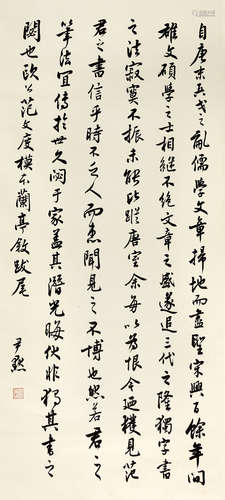 自唐末干戈之亂儒學文章掃地而盡聖宋興百餘年間
雄文碩學之士相繼不絕文章之盛遂追三代之隆獨字書
之法寂寞不振未能比蹤唐室余每以為恨今乃獲見范
君之書信乎時不乏人而患聞見之不博也然若君之
筆法宜傳於世久而闕于家蓋其潛光晦伏非獨其書之
闕也歐公范文度模本蘭亭敘跋尾
尹默